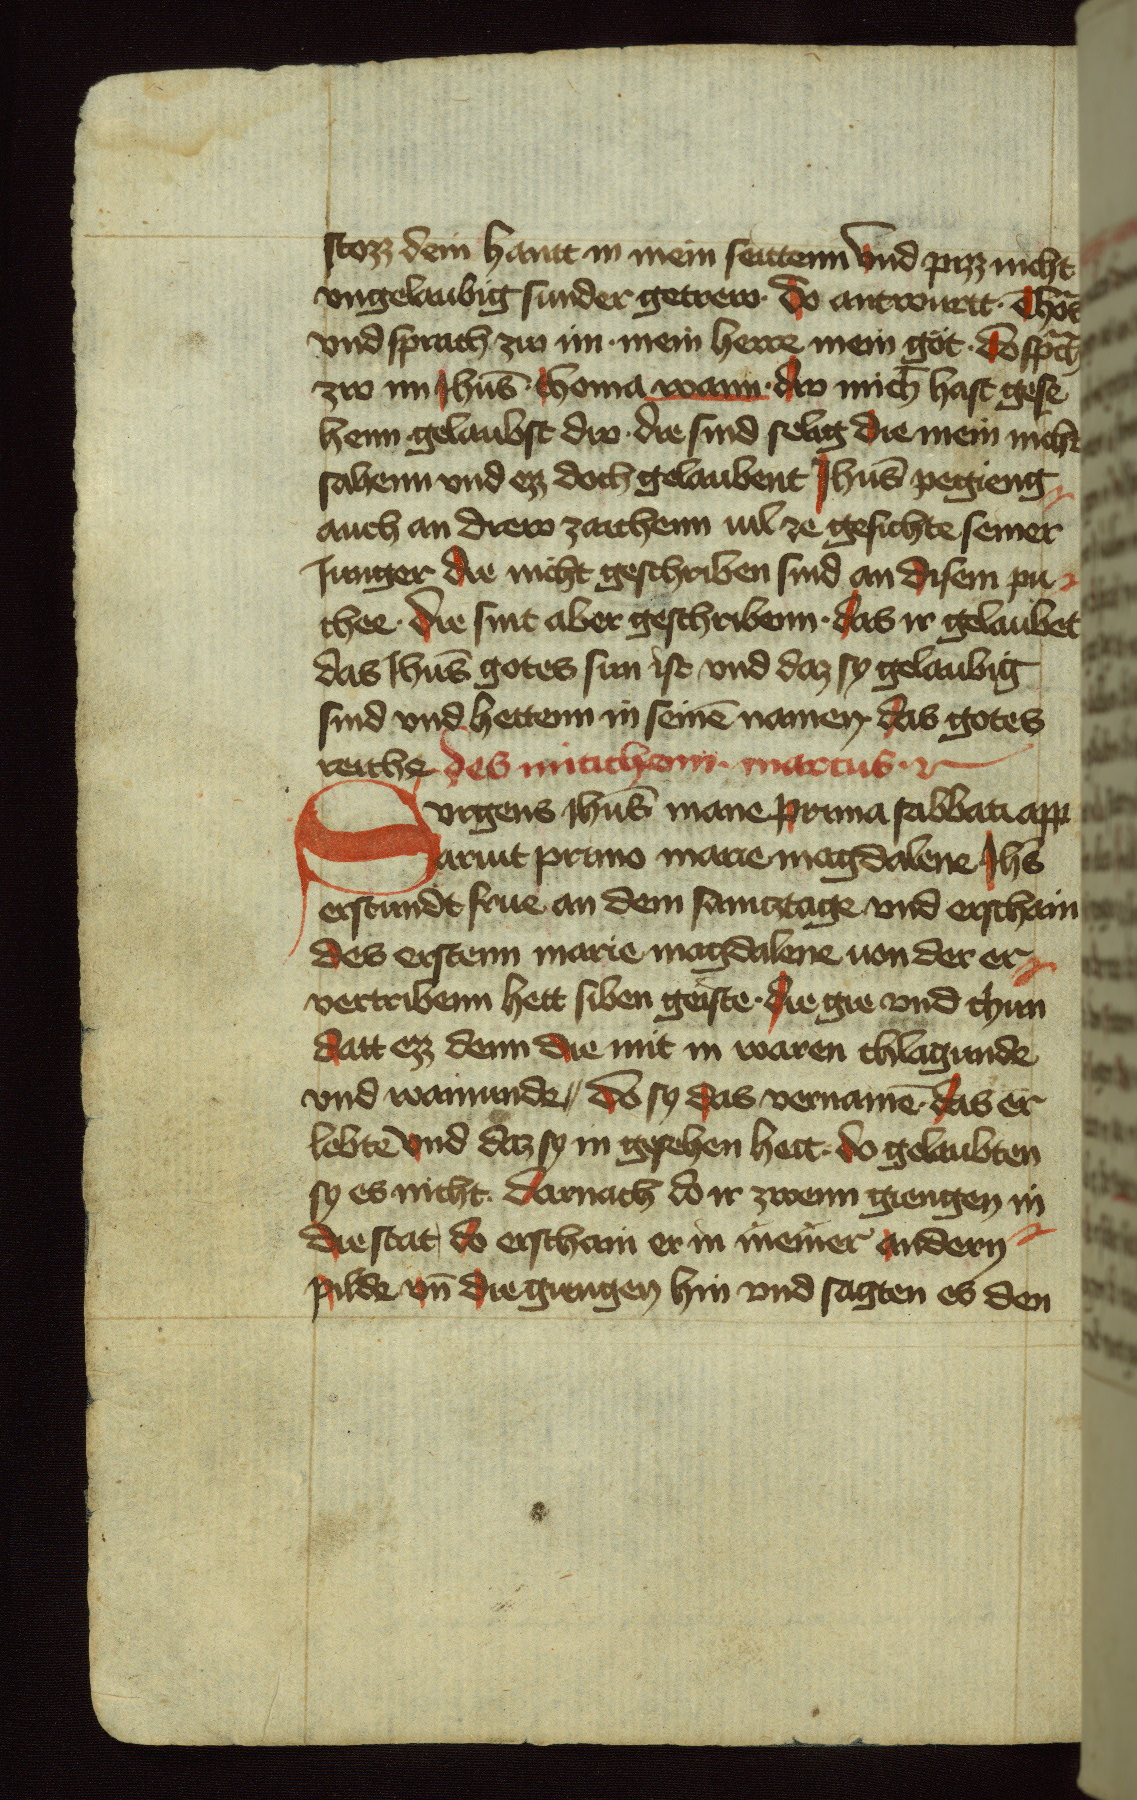 stozz dein hantt in mein seittenn Vnd pizz nicht
vngelaubig sunder getrew · do antwurtt · Thōē
vnd sprach zw im · mein herre mein got · do sp̄ch
zw im Jhūs · thoma wann · dw mich hast gese
henn · gelaubst dw · die sind selig die mein nicht
sahenn vnd ezz doch gelaubent Jhūs pegieng
auch an drew zaichenn uil ze gesichte seiner
Junger die nicht geschriben sind an disem pu
chee · die sint aber geschribenn · das ir gelaubet
das Jhūs gotes sun ist vnd daz sy gelaubig
sind vnd hettenn in seinē namen · das gotes
reiche des mitichenn · marcus ·
Surgens Jhūs mane prima sabbati app
aruit primo marie magdalene Jhs
erstundt frue an dem samcztage vnd erschain
des erstenn marie magdalene uon der er
vertribenn hett siben geiste · die gie vnd chun
datt ezz denn die mit in waren chlagunde
vnd wainunde // do sy das vernamē · das er
lebte Vnd daz sy in gesehen hett · do gelaubten
sy es nicht · darnach do ir zwenn giengen in
die stat do erschain er in in einer andern
pilde vn̄ die giengen hin vnd sagten es den